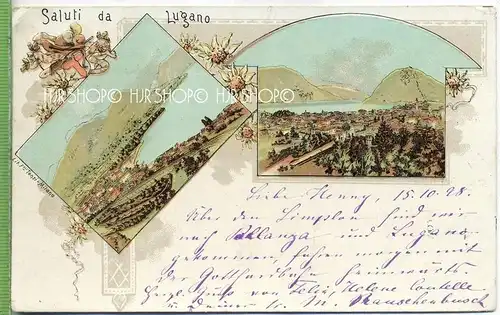 Saluti da Lugano
HJR SHOP© HJR SHOP© HJR SHOP© HJR SHOP©
Liebe Henny, 15.10.98.
Über den Simplon sind wir
nach Pallanza und Lugano
gekommen, fahren morgen mit
der Gotthardbahn heimwärts.
Herzl. Gruss von Felix, Helene
u Deiner M. Rauschenbusch